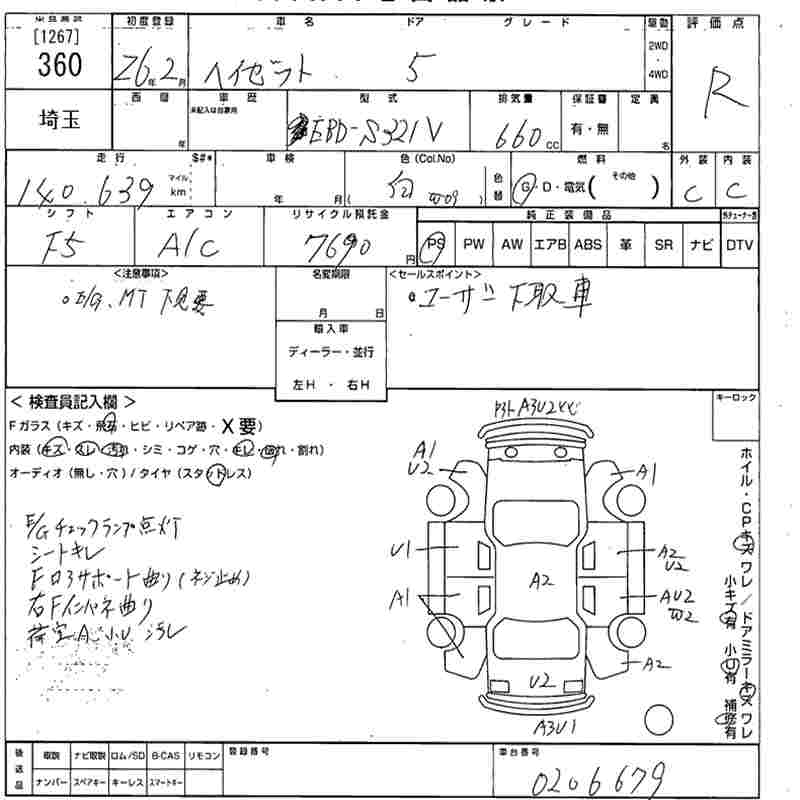 [1267]
360
埼玉
初度登録
26年2月
車名
ハイゼット
ドア
5
グレード
駆動
2WD
・
4WD
評価点
R
西暦
年
車歴
未記入は自家用
型式
EBD-S321V
排気量
660cc
保証書
有・無
定員
名
走行
140,639
マイル
km
S#*
車検
年 月
色(Col.No)
白
( W09 )
色替
燃料
G・D・電気( その他 )
外装
C
内装
C
シフト
F5
エアコン
A/C
リサイクル預託金
7690円
純正装備品
PS PW AW エアB ABS 革 SR ナビ DTV
<注意事項>
。E/G、MT 下見要
名変期限
月 日
輸入車
ディーラー・並行
左H・右H
<セールスポイント>
。ユーザー下取車
<検査員記入欄>
Fガラス(キズ・飛石・ヒビ・リペア跡・X要)
内装(キズ・スレ・汚れ・シミ・コゲ・穴・キレ・割れ)
オーディオ(無し・穴)/タイヤ(スタッドレス)
E/Gチェックランプ点灯
シートキレ
Fロアサポート曲り(ネジ止め)
右Fインパネ曲り
荷室A、小U 汚レ
キーロック
A3U2
A1
U2
A1
U1
A2
U2
A1
A2
AU2
W2
A2
U2
A3U1
ホイル・CPキズ ワレ/ドアミラーキズ ワレ
小キズ有 小U有 補修有
後送品
取説 ナビ取説 ロム/SD B-CAS リモコン
ナンバー スペアキー キーレス スマートキー
登録番号
車台番号
0206679